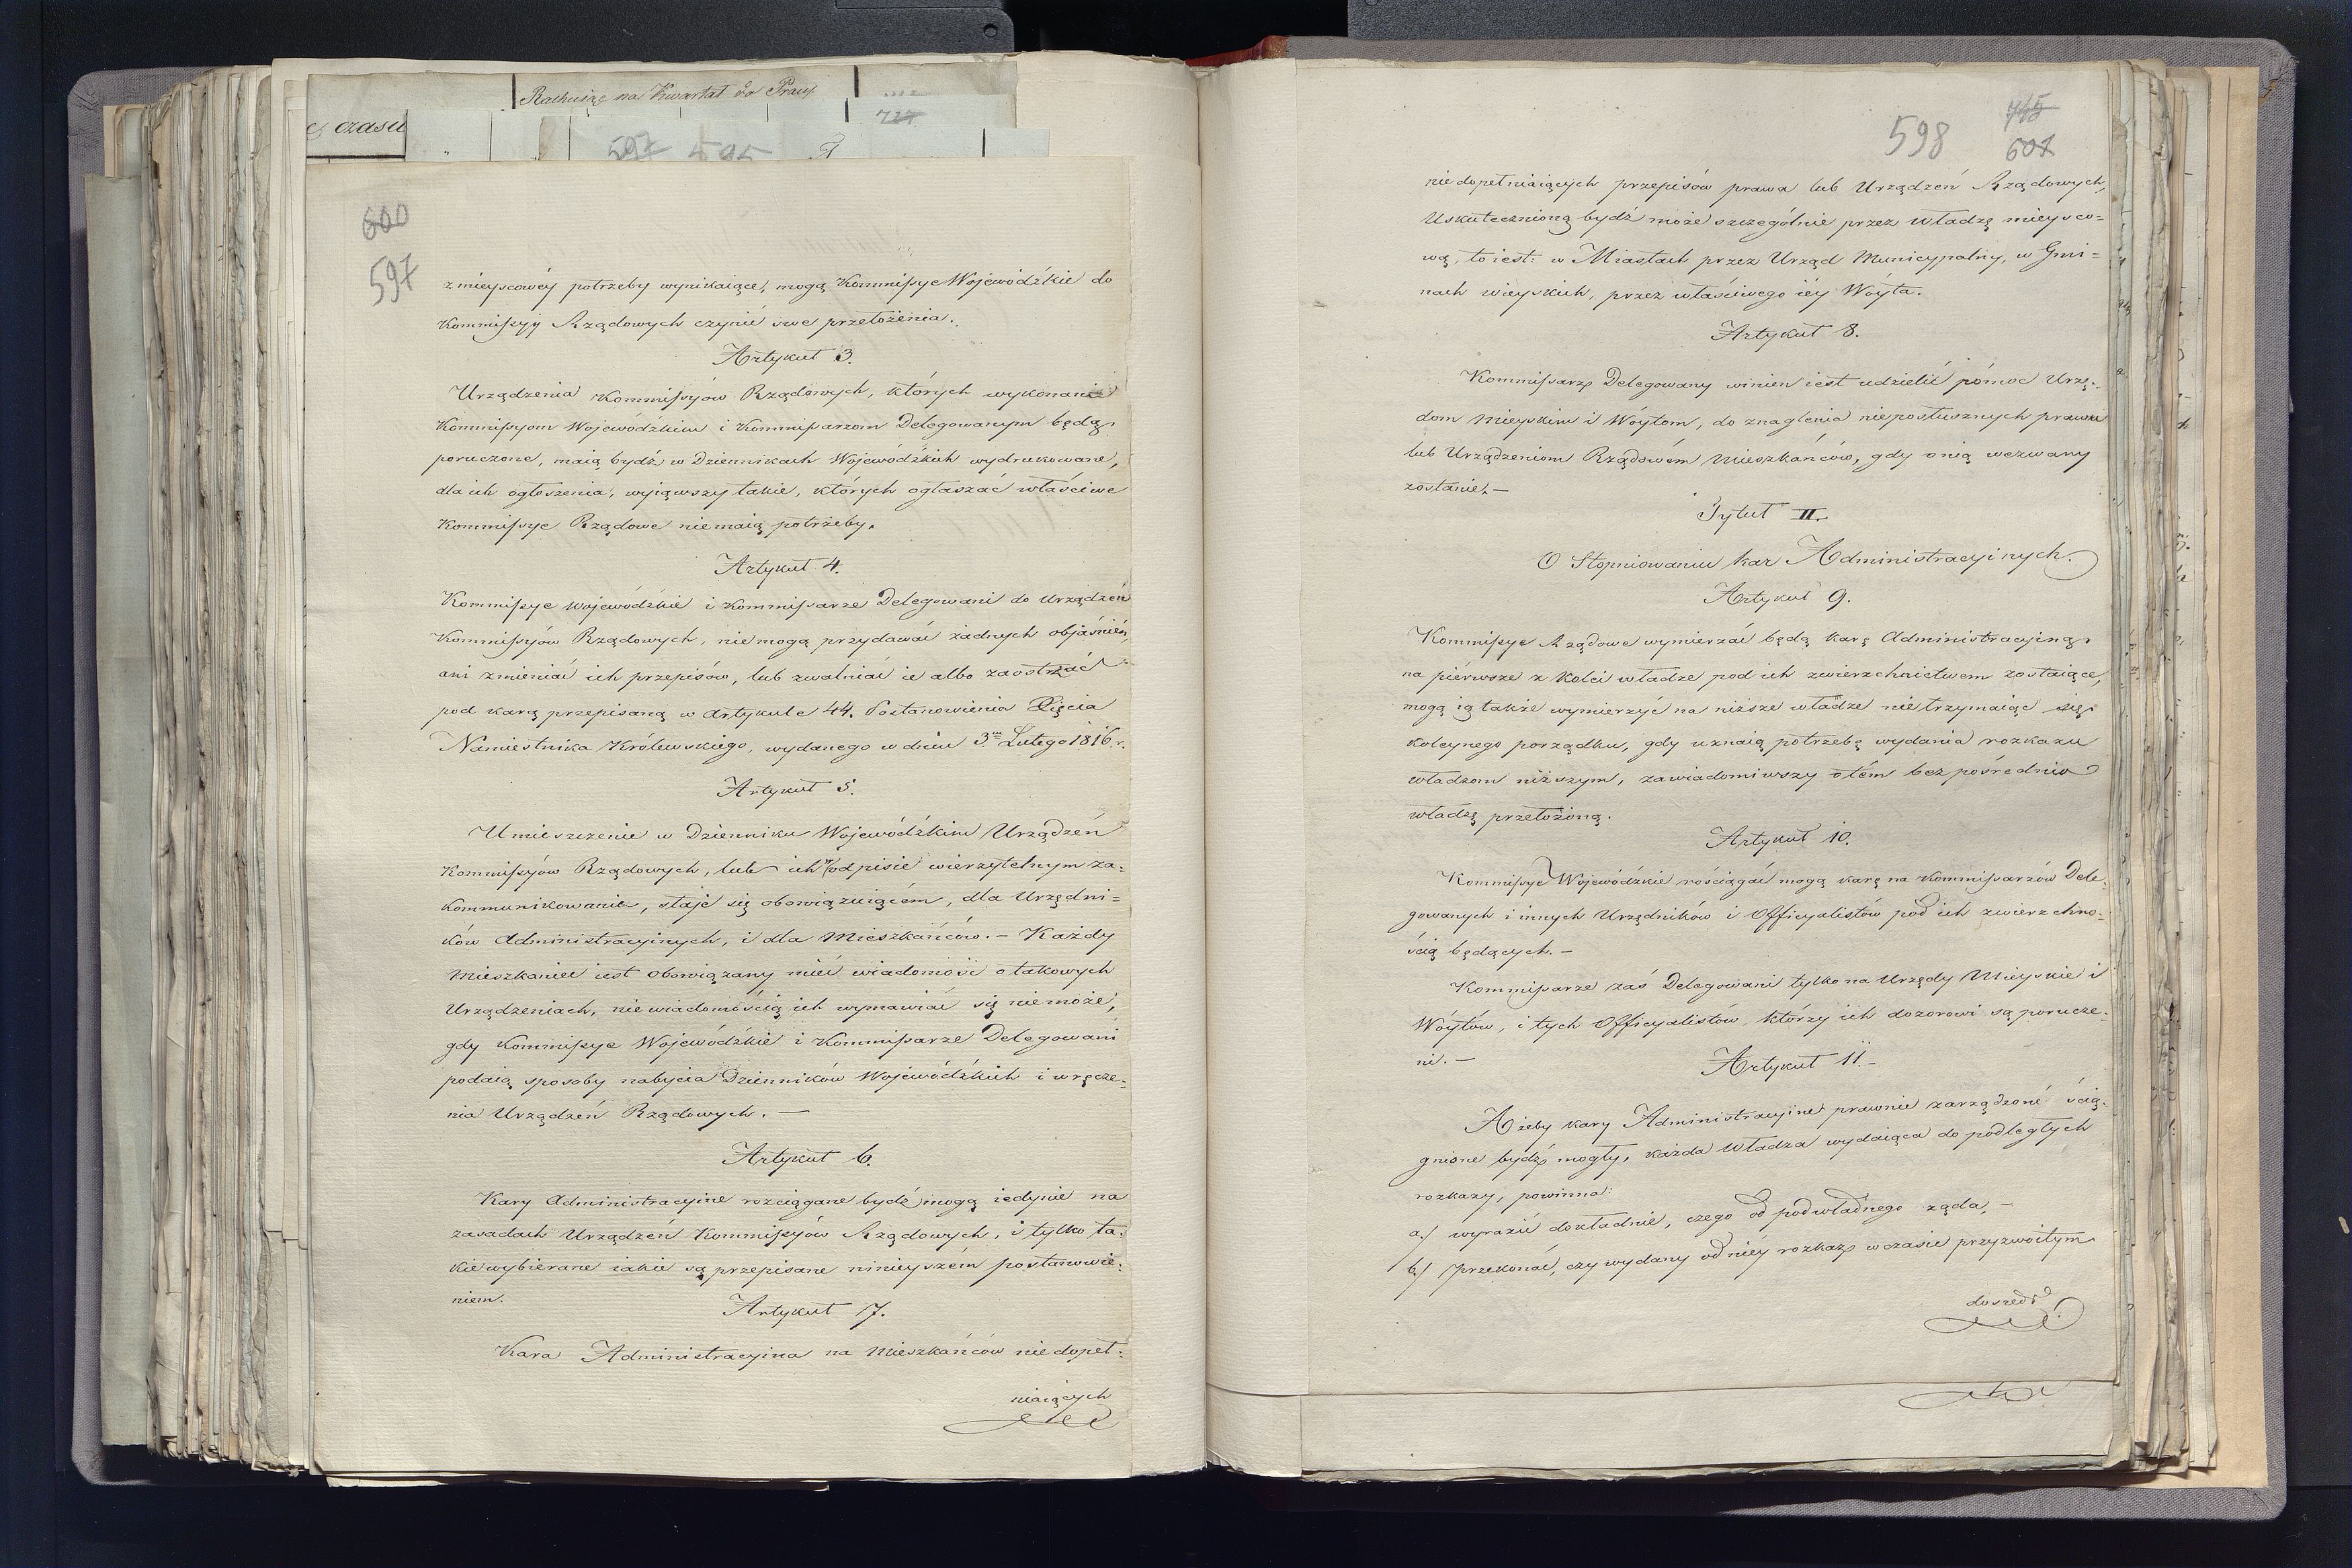 Rachuiąc na Kwartał do
727
czasu
597 595
600
597
z mieyscowéy potrzeby wynikaiące, mogą Kommissye Wojewódzkie do
Kommissyy Rządowych czynić swe przełożenia.
Artykuł 3.
Urządzenia Kommissyów Rządowych, których wykonanie
Kommissyom Wojewódzkim i Kommissarzom Delegowanym będą
poruczone, maią bydź w Dziennikach Wojewódzkich wydrukowane,
dla ich ogłoszenia, wyiąwszy takie, których ogłaszać właściwe
Kommissye Rządowe nie maią potrzeby.
Artykuł 4.
Kommissye Wojewódzkie i Kommissarze Delegowani do Urządzeń
Kommissyów Rządowych, nie mogą przydawać żadnych objaśnień,
ani zmieniać ich przepisów, lub zwalniać ie albo zaostrzać
pod karą przepisaną w Artykule 44. Postanowienia Xięcia
Namiestnika Królewskiego, wydanego w dniu 3.m Lutego 1816 r.
Artykuł 5.
Umieszczenie w Dzienniku Wojewódzkim Urządzeń
Kommissyów Rządowych, lub ich w odpisie wierzytelnym za=
kommunikowanie, staje się obowiązuiącém, dla Urzędni=
ków Administracyinych, i dla Mieszkańców. – Każdy
Mieszkaniec iest obowiązany mieć wiadomość o takowych
Urządzeniach, niewiadomością ich wymawiać się nie może,
gdy Kommissye Wojewódzkie i Kommissarze Delegowani
podaią sposoby nabycia Dzienników Wojewódzkich i wręcze=
nia Urządzeń Rządowych. –
Artykuł 6.
Kary Administracyine rozciągane bydź mogą iedynie na
zasadach Urządzeń Kommissyów Rządowych, i tylko ta=
kie wybierane iakie są przepisane ninieyszém postanowie=
niem.
Artykuł 7.
Kara Administracyina na Mieszkańców niedopeł=
niaiących
598
715
607
niedopełniaiących przepisów prawa lub Urządzeń Rządowych,
Uskutecznioną bydź może szczególnie przez Władzę mieysco=
wą, to iest: w Miastach przez Urząd Municypalny, w Gmi=
nach wieyskich, przez właściwego iéy Wóyta.
Artykuł 8.
Kommissarz Delegowany winien iest udzielić pómoc Urzę=
dom Mieyskim i Wóytom, do znaglenia nieposłusznych prawu
lub Urządzeniom Rządowém Mieszkańców, gdy o nią wezwany
zostanie. –
Tytuł II.
O Stopniowaniu kar Administracyinych.
Artykuł 9.
Kommissye Rządowe wymierzać będą karę Administracyiną
na piérwsze z kolei władze pod ich zwierzchnictwem zostaiące,
mogą ią także wymierzyć na niższe władze nie trzymaiąc się
koleynego porządku, gdy uznaią potrzebę wydania rozkazu
władzom niższym, zawiadomiwszy o tém bezpośrednio
władzę przełożoną.
Artykuł 10.
Kommissye Wojewódzkie rościągać mogą karę na Kommissarzów Dele=
gowanych i innych Urzędników i Officyalistów pod ich zwierzchno=
ścią będących. –
Kommissarze zaś Delegowani tylko na Urzędy Mieyskie i
Wóytów, i tych Officyalistów którzy ich dozorowi są porucze=
ni. –
Artykuł 11. –
Ażeby kary Administracyine prawnie zarządzoné ścią=
gnione bydź mogły, każda Władza wydaiąca do podległych
rozkazy, powinna:
a./ wyrazić dokładnie, czego od podwładnego żąda, –
b./ przekonać, czy wydany od niéy rozkaz w czasie przyzwoitym
doszedł